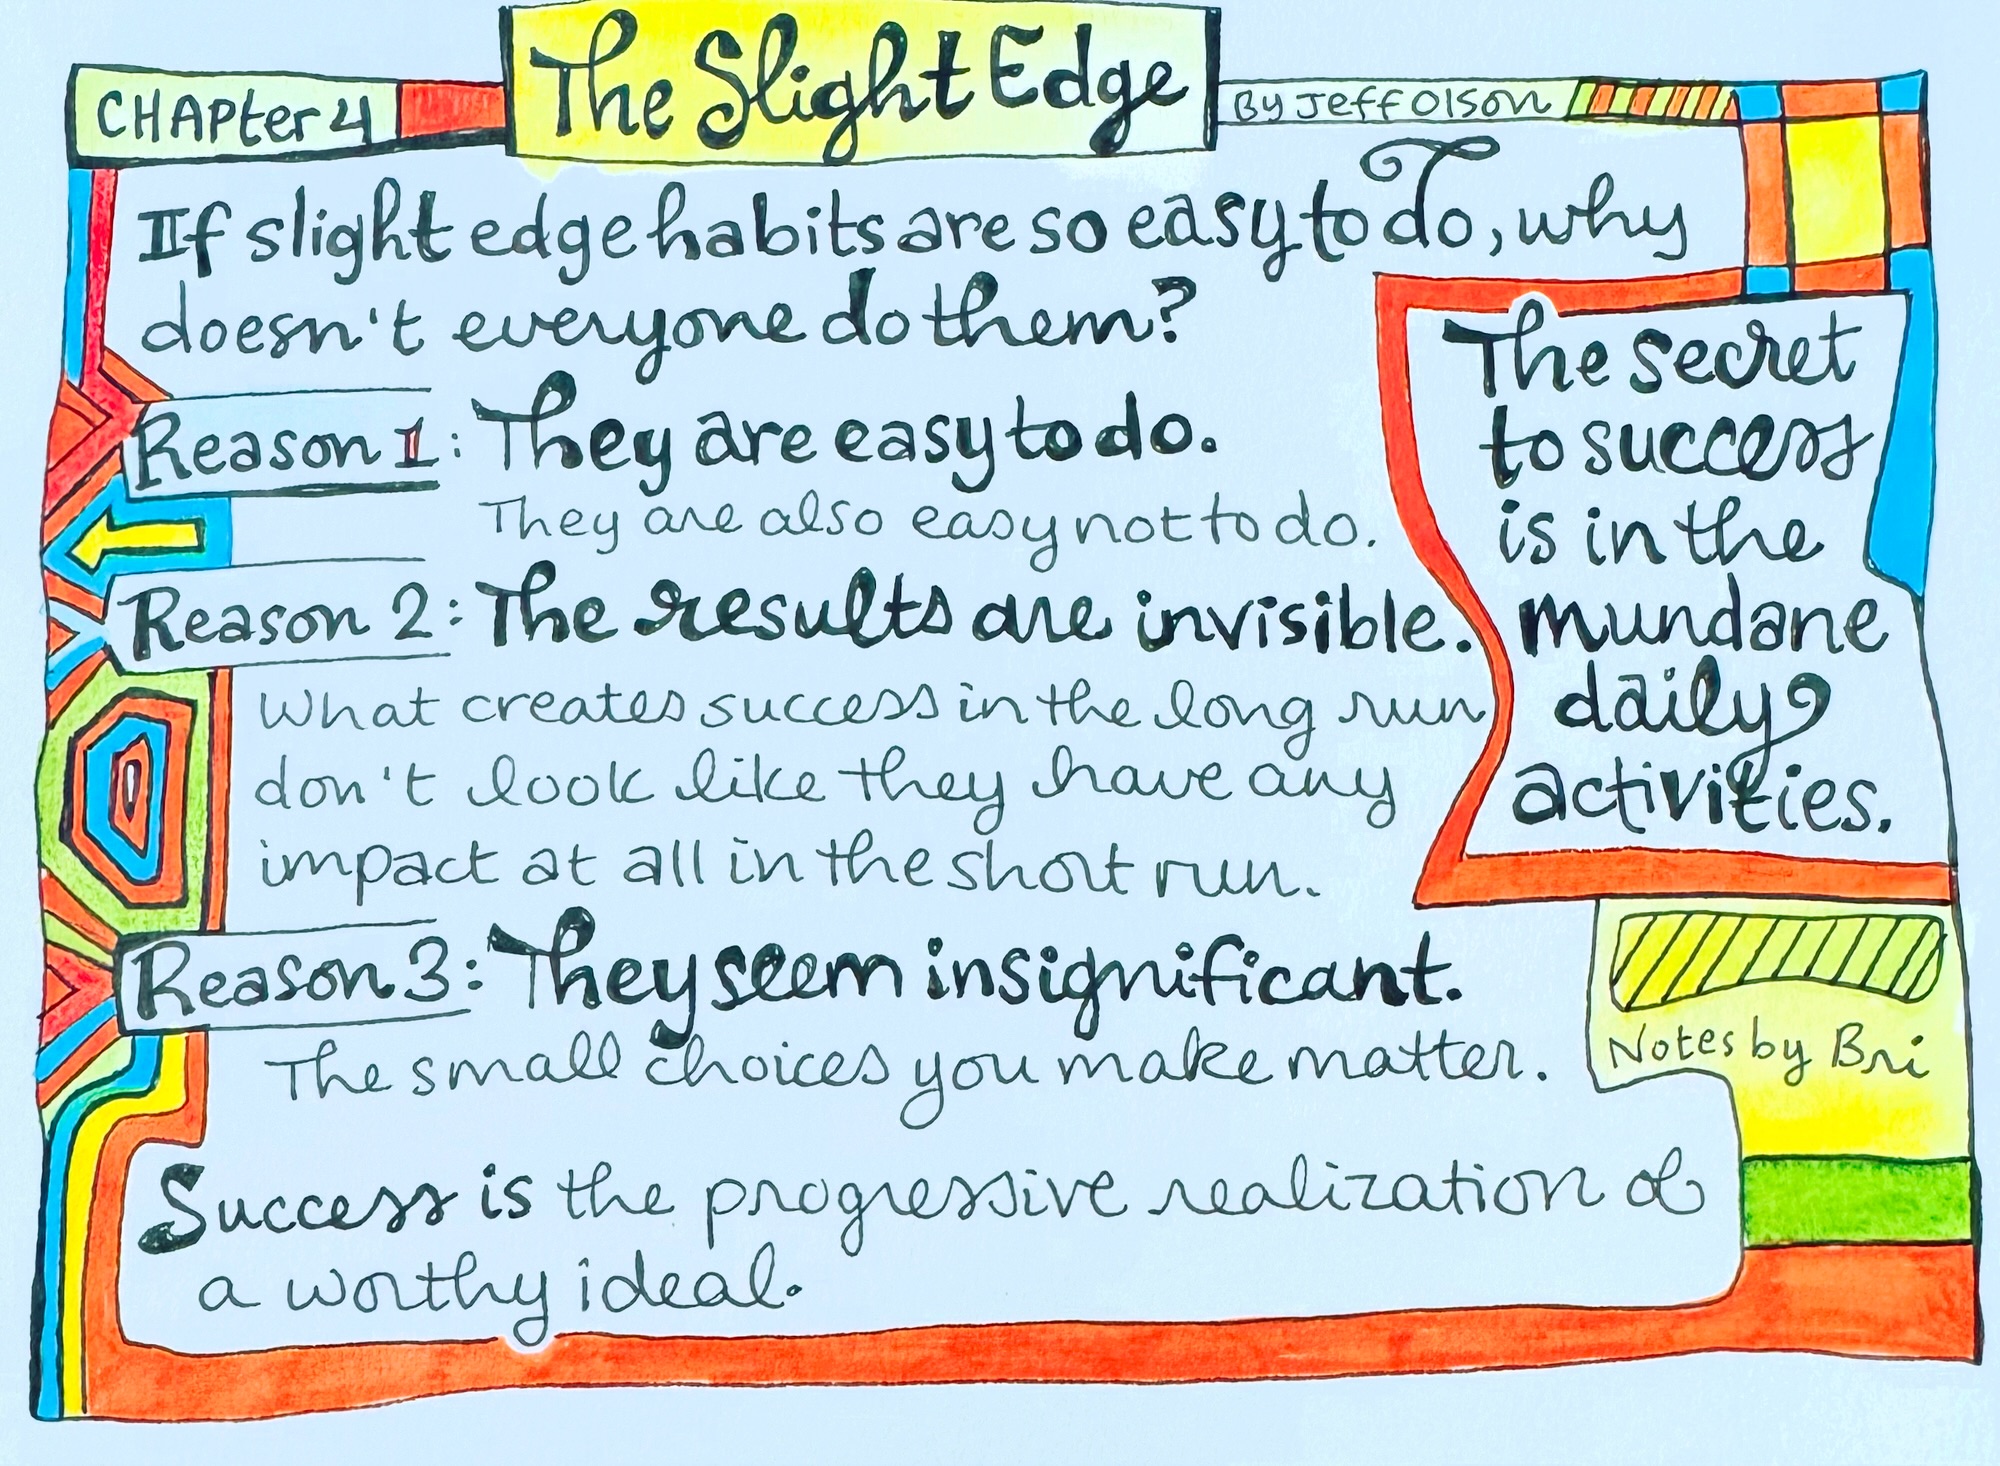 CHAPter 4
The Slight Edge
By Jeff Olson
If slight edge habits are so easy to do, why
doesn't everyone do them?
Reason 1: They are easy to do.
They are also easy not to do.
Reason 2: The results are invisible.
What creates success in the long run
don't look like they have any
impact at all in the short run.
Reason 3: They seem insignificant.
The small choices you make matter.
Success is the progressive realization of
a worthy ideal.
The secret
to success
is in the
mundane
daily
activities.
Notes by Bri